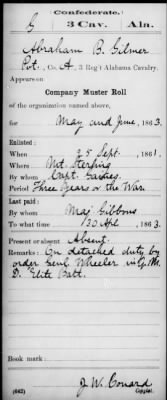 Confederate.
G 3 Cav. Ala.
Abraham B. Gilmer
Pvt., Co. A, 3 Reg't Alabama Cavalry.
Appears on
Company Muster Roll
of the organization named above,
for May and June, 1863.
Enlisted:
When 25 Sept., 1861.
Where Mt. Sterling
By whom Capt.
Period Three Years or the War.
Last paid:
By whom Maj Gibbons
To what time 30 Apl, 1863.
Present or absent Absent.
Remarks: On detached duty by
order Genl. Wheeler
D. Elite Batt.
Book mark:
J. W. Conard
(642) Copyist.